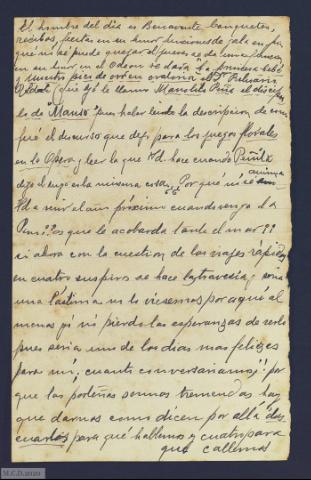 El hombre del dia es Benavente banquetes,
recibos, fiestas en su honor funciones de gala en fin
qué no se puede quejar el jueves se da una
en su honor en el Odeon se dará La
y cuentos por de orden oratoria el Dr Belisario
Roldan (que yó le llamo Manolito Peña el discípu
lo de Manso pues haber leido la descripcion de
fué el discurso que dejó para los juegos florales
en la Opera y leer la que Vd. hace cuando Peñita
dijo el suyo es la misma cosa). Por qué no se anima
Vd a venir el año próximo cuando venga el a
Pom? ¿es que le acobarda tanto el mar??
si ahora con la cuestion de los viajes rápidos
en cuatro suspiros se hace la travesia, y seria
una lastima no lo viesemos por aquí al
menos yó no pierdo las esperanzas de verlo
pues seria uno de los dias mas felizes
para mi; cuanto conversariamos!! por
que las porteñas somos tremendas hay
que darnos como dicen por allá dos
cuartos para qué hablemos y cuatro para
que callemos
M.C.D.2020